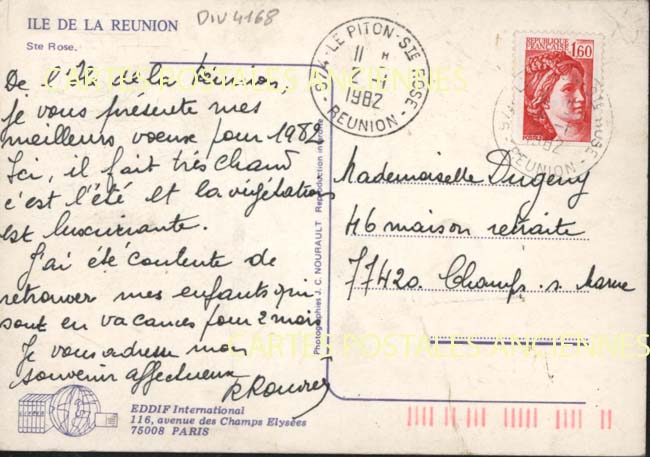 ILE DE LA REUNION
Ste Rose.
DIV 4168
De l'Ile de la Réunion,
je vous présente mes
meilleurs voeux pour 1982
Ici, il fait très chaud
c'est l'été et la végétation
est luxuriante.
J'ai été contente de
retrouver mes enfants qui
sont en vacances pour 2 mois
Je vous adresse mon
souvenir affectueux
EDDIF International
116, avenue des Champs Elysées
75008 PARIS
Photographies J.C. NOURAULT Reproduction interdite
974 - LE PITON - STE ROSE -
11 H
1982
REUNION
REPUBLIQUE FRANÇAISE
1,60
POSTES
1982
REUNION
Mademoiselle Dugeny
46 maison retraite
77420 Champs s. Marne
CARTES POSTALES ANCIENNES
CARTES POSTALES ANCIENNES